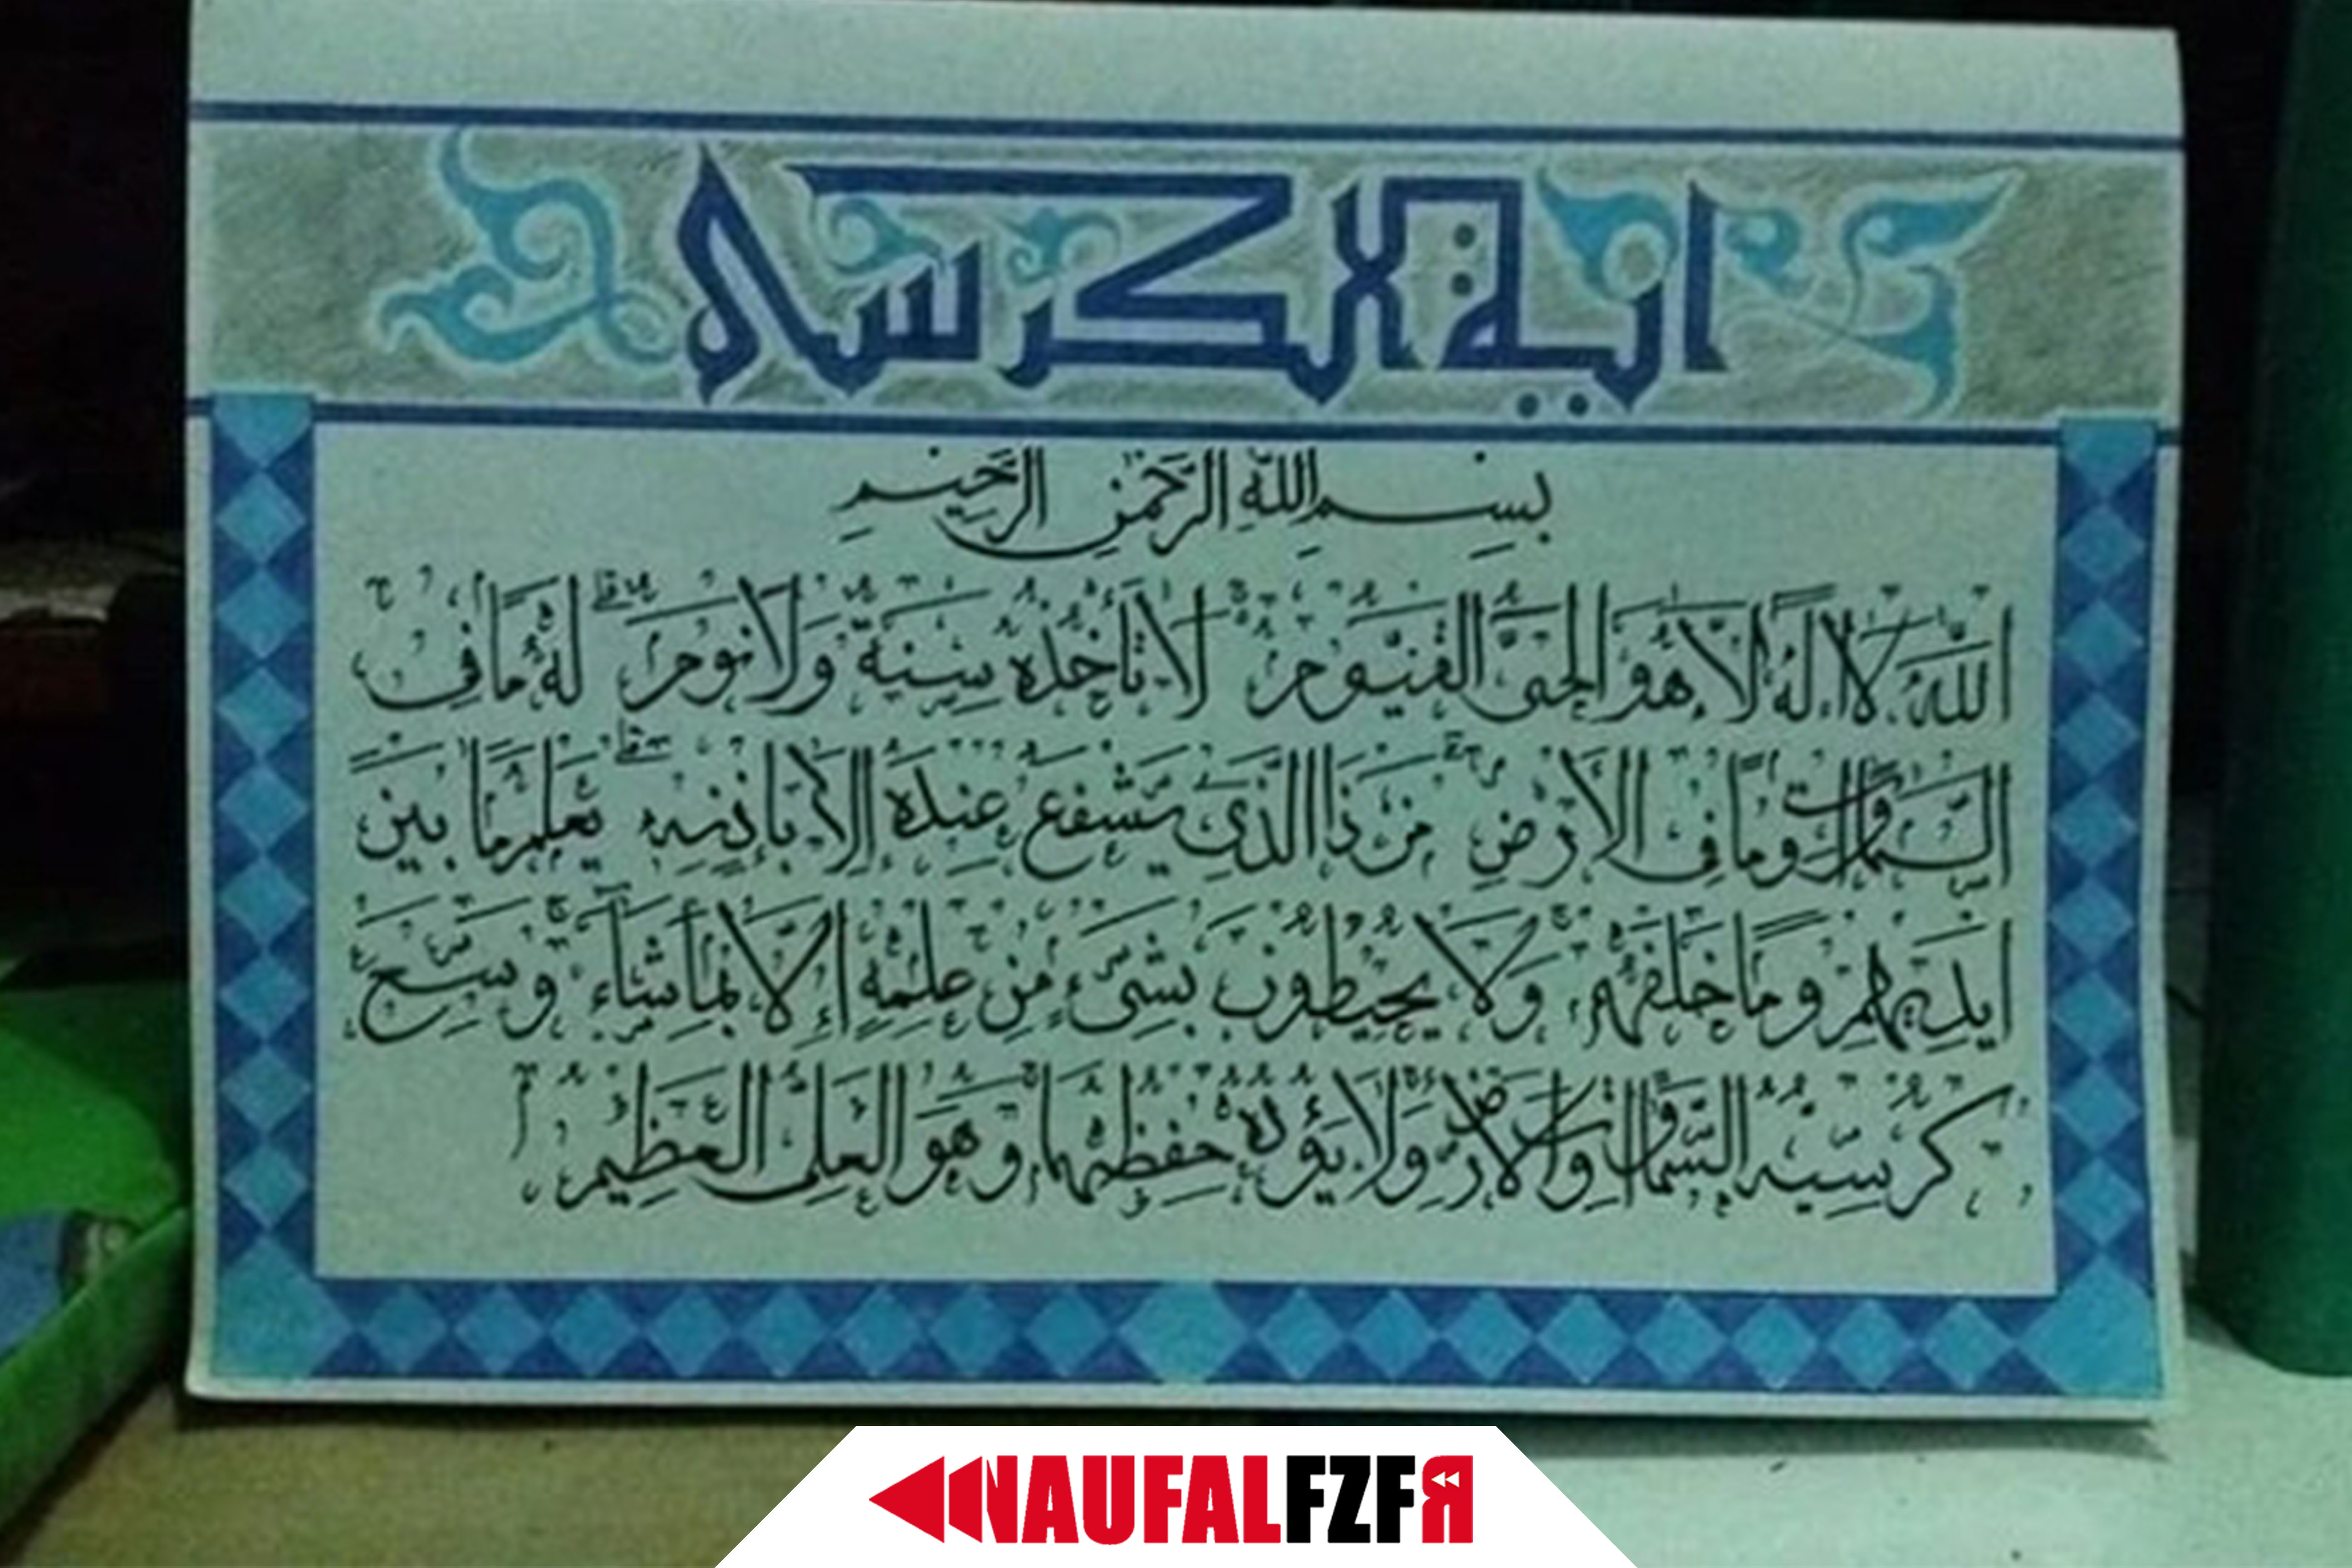 اية الكرسي
بِسْمِ اللهِ الرَّحْمٰنِ الرَّحِيْمِ
اَللّٰهُ لَا اِلٰهَ اِلَّا هُوَ الْحَيُّ الْقَيُّوْمُ لَا تَأْخُذُهٗ سِنَةٌ وَّلَا نَوْمٌ لَهٗ مَا فِى
السَّمٰوَاتِ وَمَا فِى الْاَرْضِ مَنْ ذَا الَّذِيْ يَشْفَعُ عِنْدَهٗ اِلَّا بِاِذْنِهٖ يَعْلَمُ مَا بَيْنَ
اَيْدِيْهِمْ وَمَا خَلْفَهُمْ وَلَا يُحِيْطُوْنَ بِشَيْءٍ مِنْ عِلْمِهٖ اِلَّا بِمَا شَاءَ وَسِعَ
كُرْسِيُّهُ السَّمٰوَاتِ وَالْاَرْضَ وَلَا يَؤُدُهٗ حِفْظُهُمَا وَهُوَ الْعَلِيُّ الْعَظِيْمُ
NAUFALFZFR